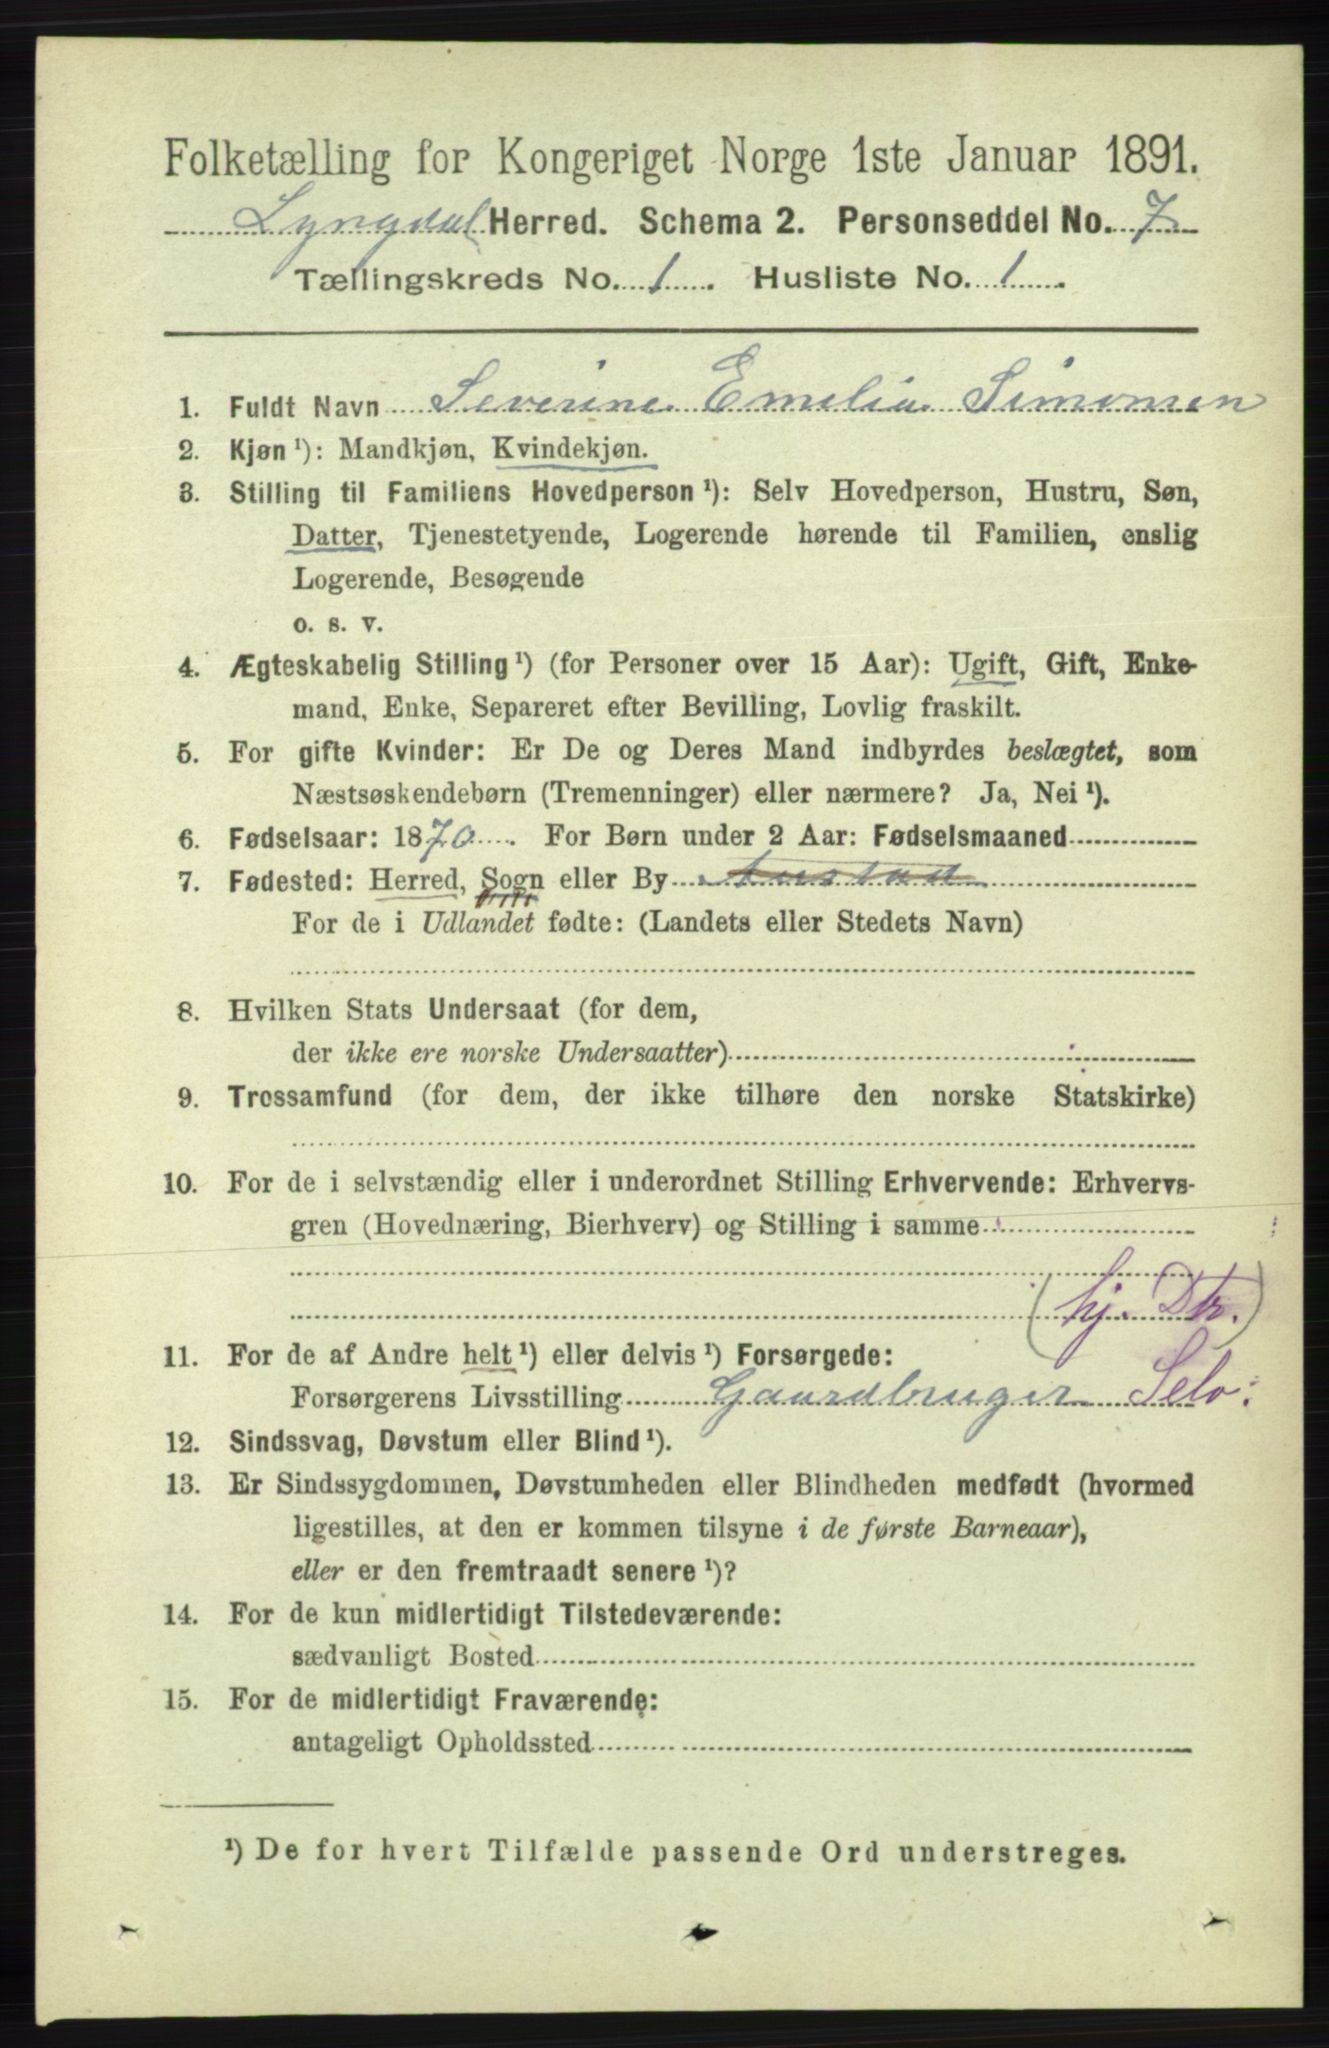 Folketælling for Kongeriget Norge 1ste Januar 1891.
Lyngdal Herred. Schema 2. Personseddel No. 7
Tællingskreds No. 1. Husliste No. 1.
1. Fuldt Navn Severine Emelia Simonsen
2. Kjøn ¹): Mandkjøn, Kvindekjøn.
3. Stilling til Familiens Hovedperson ¹): Selv Hovedperson, Hustru, Søn,
Datter, Tjenestetyende, Logerende hørende til Familien, enslig
Logerende, Besøgende
o. s. v.
4. Ægteskabelig Stilling ¹) (for Personer over 15 Aar): Ugift, Gift, Enke-
mand, Enke, Separeret efter Bevilling, Lovlig fraskilt.
5. For gifte Kvinder: Er De og Deres Mand indbyrdes beslægtet, som
Næstsøskendebørn (Tremenninger) eller nærmere? Ja, Nei ¹).
6. Fødselsaar: 1870. For Børn under 2 Aar: Fødselsmaaned
7. Fødested: Herred, Sogn eller By Austad
For de i Udlandet fødte: (Landets eller Stedets Navn)
8. Hvilken Stats Undersaat (for dem,
der ikke ere norske Undersaatter)
9. Trossamfund (for dem, der ikke tilhøre den norske Statskirke)
10. For de i selvstændig eller i underordnet Stilling Erhvervende: Erhvervs-
gren (Hovednæring, Bierhverv) og Stilling i samme
(hj. Dtr.)
11. For de af Andre helt ¹) eller delvis ¹) Forsørgede:
Forsørgerens Livsstilling Gaardbruger Selv:
12. Sindssvag, Døvstum eller Blind ¹).
13. Er Sindssygdommen, Døvstumheden eller Blindheden medfødt (hvormed
ligestilles, at den er kommen tilsyne i de første Barneaar),
eller er den fremtraadt senere ¹)?
14. For de kun midlertidigt Tilstedeværende:
sædvanligt Bosted
15. For de midlertidigt Fraværende:
antageligt Opholdssted
¹) De for hvert Tilfælde passende Ord understreges.